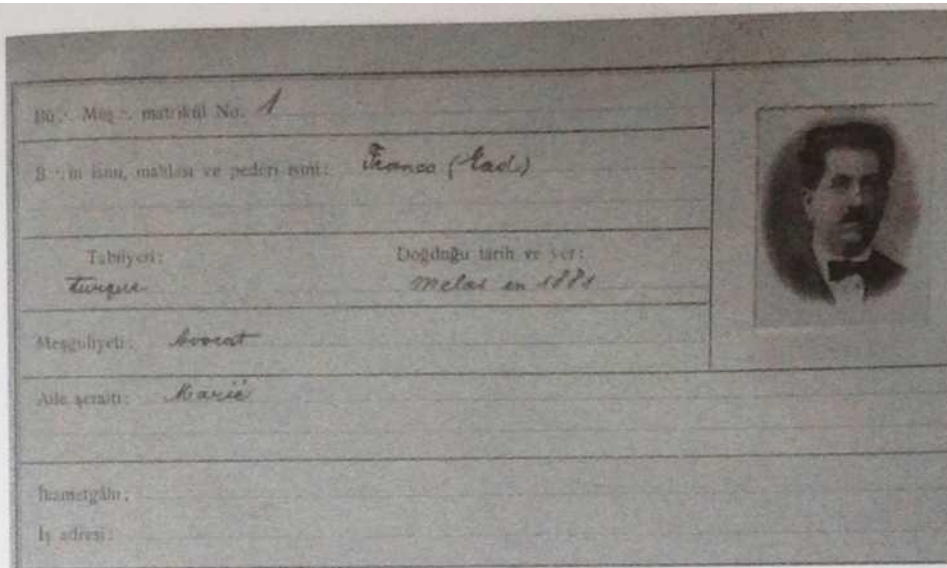 Bü∴ Müş∴ matrikül No. 1
B∴in ismi, mahlası ve pederi ismi: Franco (Gad)
Tabiiyeti: Doğduğu tarih ve yer:
turque Melas en 1881
Meşguliyeti: Avocat
Aile şeraiti: Marié
İkametgâhı:
İş adresi: